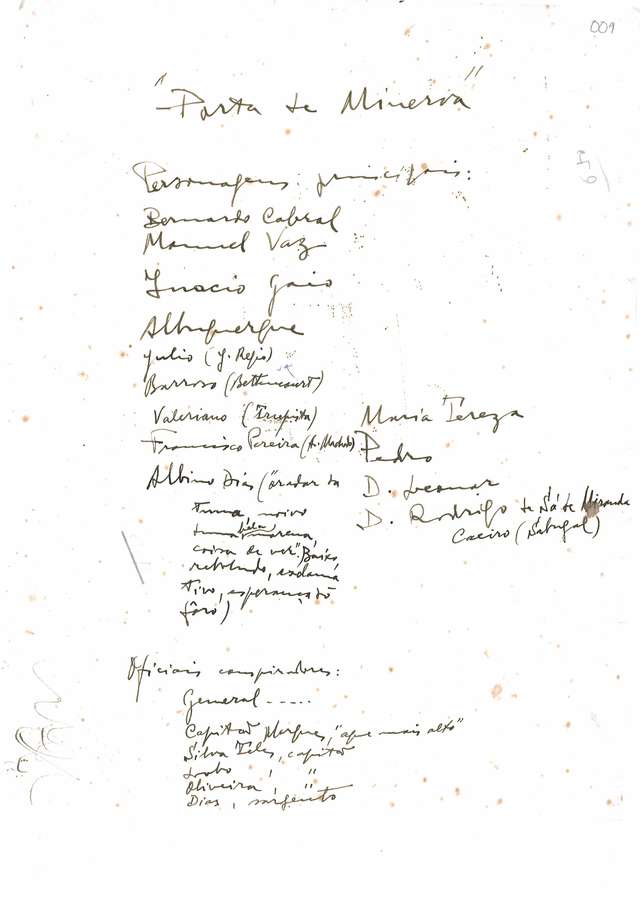 009
"Porta de Minerva"
Personagens principais:
Bernardo Cabral
Manuel Vaz
Ignacio Gaio
Albuquerque
Julio (J. Regio)
Barroso (Bettencourt)
Valeriano (Trupista)
Francisco Pereira (A. Machado)
Albino Dias ("orador da
Tuna, noivo
duma bela morena,
coisa de ver". Baixo,
reboludo, exclama
tivo, esperança do
fôro)
Maria Tereza
Pedro
D. Leonor
D. Rodrigo de Sá de Miranda
Caeiro (Sabugal)
Oficiais conspiradores:
General .....
Capitão Marques, "a que mais alto"
Silva Teles, capitão
Lobo , "
Oliveira , "
Dias, sargento